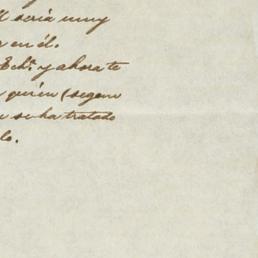 seria muy
en él.
Echº. y ahora te
quien (segun
se ha tratado
lo.